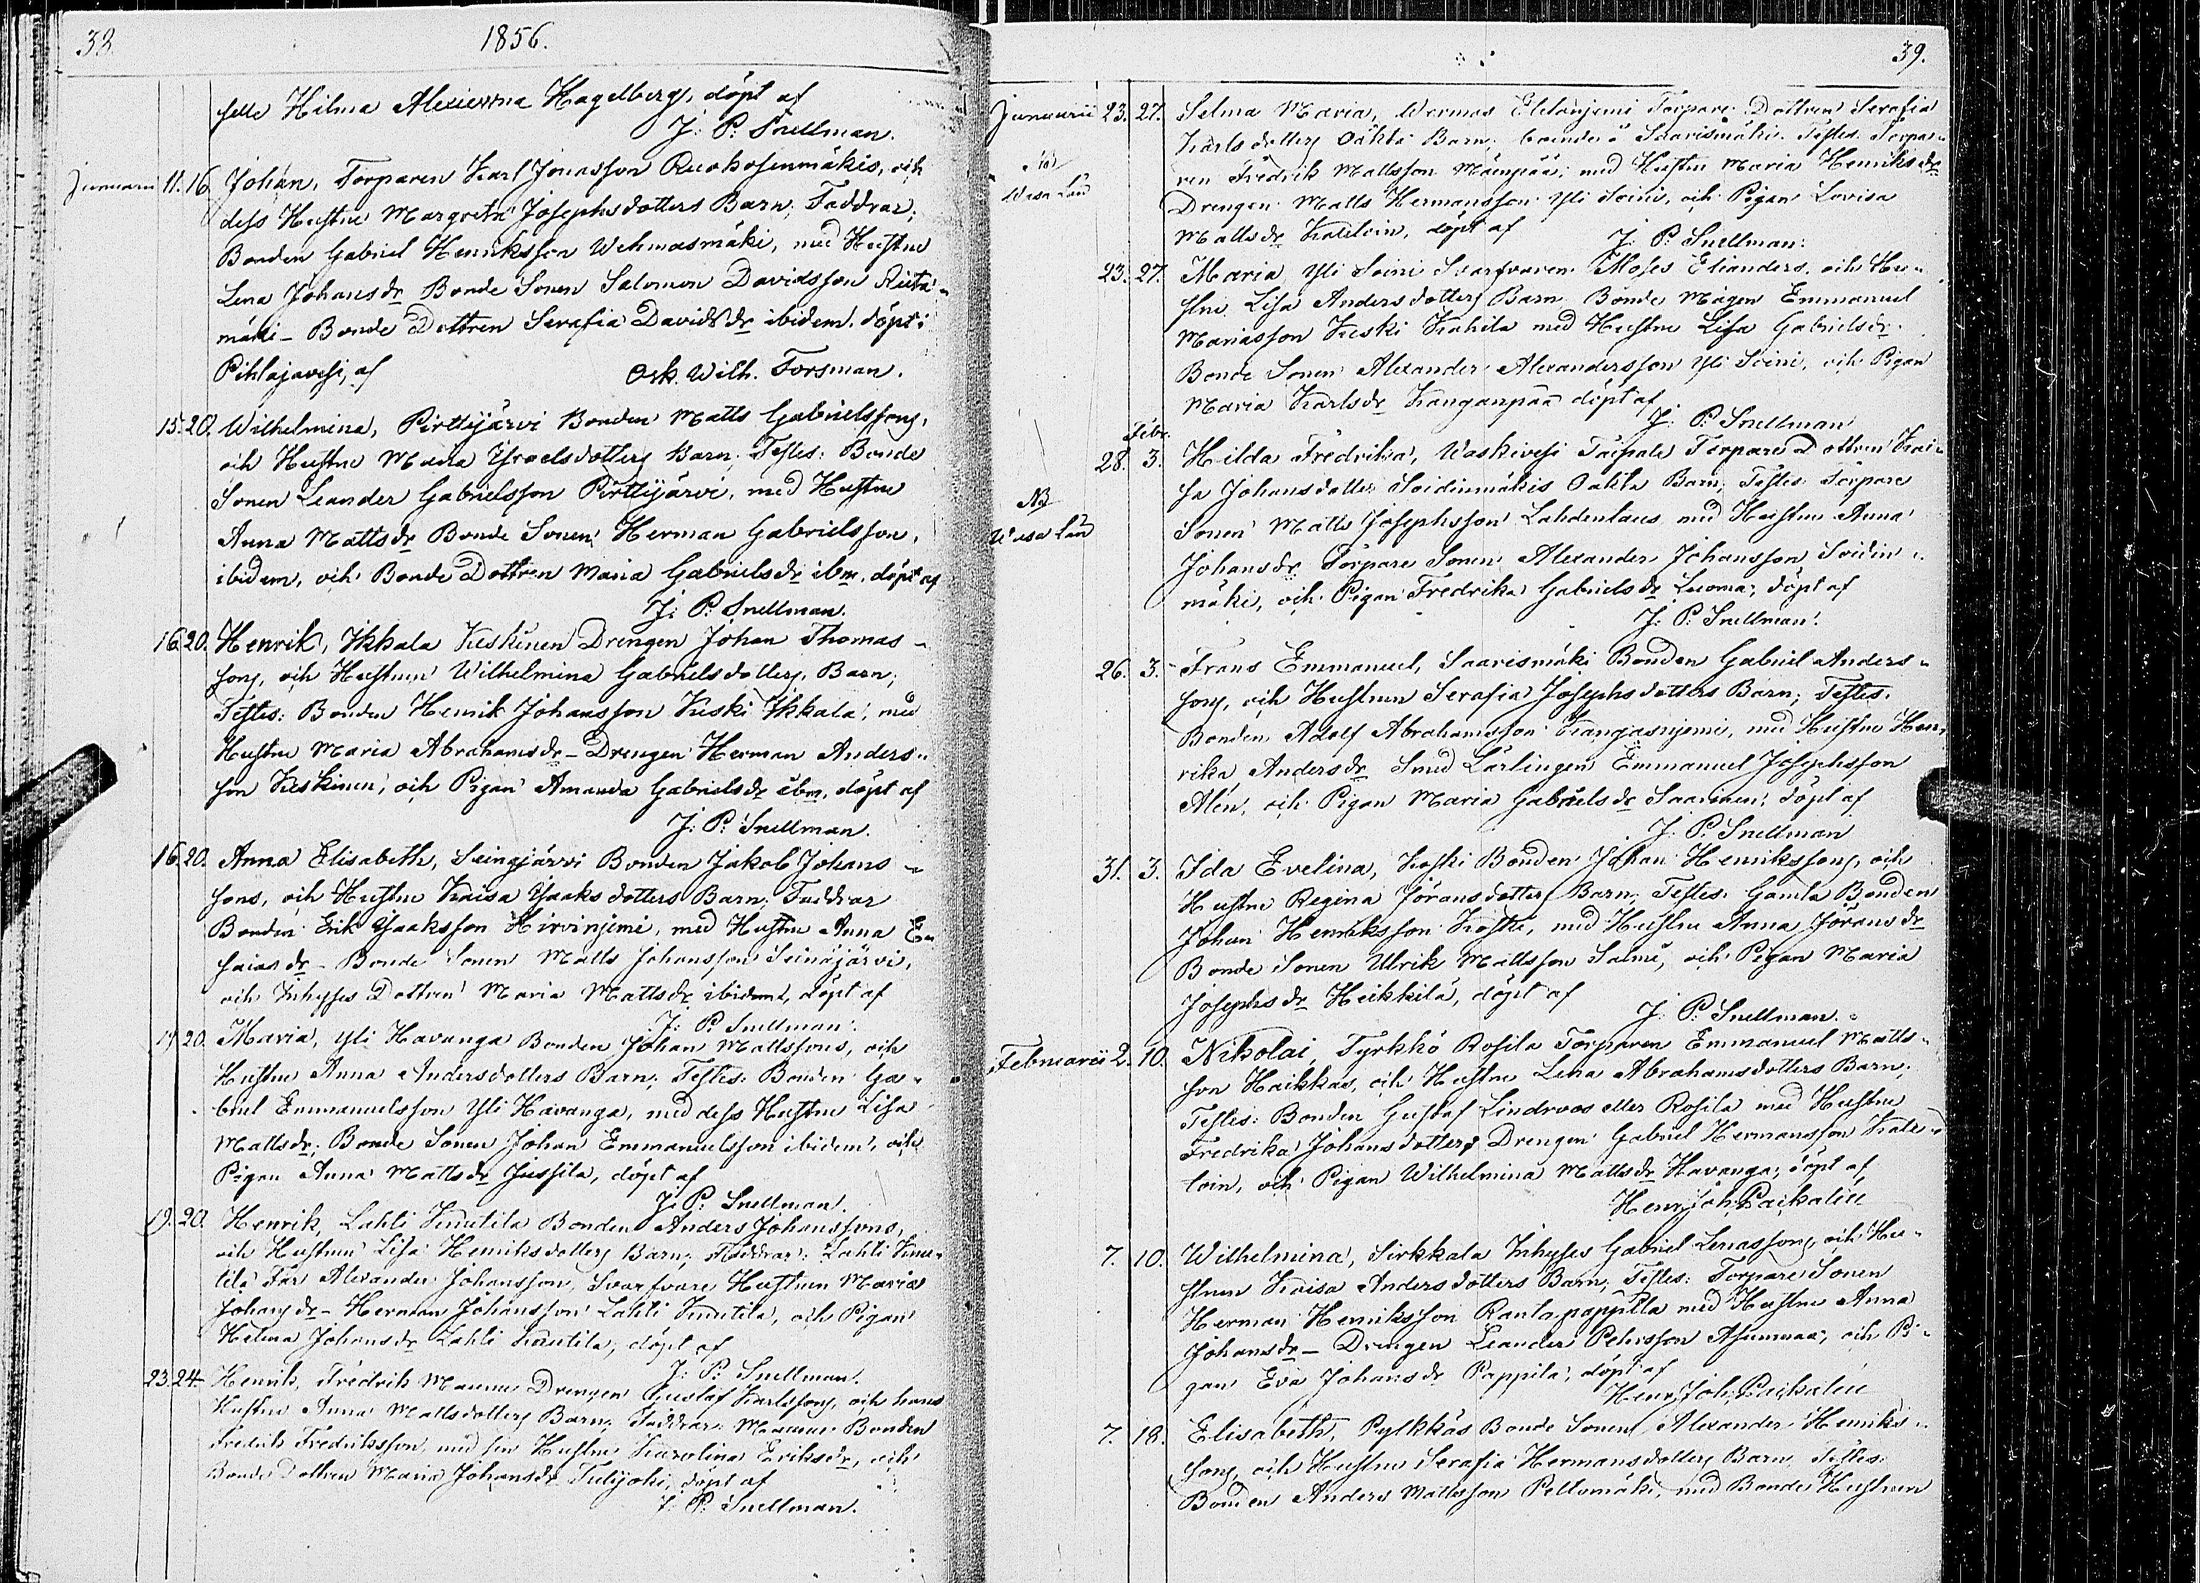 38. 1856.
selle Hilma Alexierina Hagelberg, döpt af
J: P: Snellman.
Januarii 11. 16. Johan, Torparen Karl Jonasson Ruohosenmäkis, och
dess Hustru Margreta Josephsdotters Barn, Faddrar;
Bonden Gabriel Henriksson Wehmasmäki, med Hustru
Lena Johansdr Bonde Sonen Salomon Davidsson Riita-
mäki – Bonde Dottren Serafia Davidsdr ibidem, döpt i
Pihlajavesi, af Osk. Wilh. Forsman.
15. 20. Wilhelmina, Pirttijärvi Bonden Matts Gabrielssons,
och Hustru Maria Ysraelsdotters Barn, Testes: Bonde
Sonen Leander Gabrielsson Pirttijärvi, med Hustru
Anna Mattsdr Bonde Sonen Herman Gabrielsson,
ibidem, och Bonde Dottren Maria Gabrielsdr ibm, döpt af
J: P: Snellman.
16. 20. Henrik, Ikkala Keskinen Drengen Johan Thomas-
sons, och Hustrun Wilhelmina Gabrielsdotters, Barn;
Testes: Bonden Henrik Johansson Keski Ikkala, med
Hustru Maria Abrahamsdr – Drengen Herman Anders-
son Keskinen, och Pigan Amanda Gabrielsdr ibm, döpt af
J: P: Snellman.
16. 20. Anna Elisabeth, Seinäjärvi Bonden Jakob Johans-
sons, och Hustru Kaisa Ysaksdotters Barn, Faddrar
Bonden Erik Ysaksson Hirvinjemi, med Hustru Anna E-
saiasdr – Bonde Sonen Matts Johansson Seinäjärvi,
och Inhyses Dottren Maria Mattsdr ibidem, döpt af
J: P: Snellman.
17. 20. Maria, Yli Havanga Bonden Johan Mattssons, och
Hustru Anna Andersdotters Barn, Testes: Bonden Ga-
briel Emmanuelsson Yli Havanga, med dess Hustru Lisa
Mattsdr; Bonde Sonen Johan Emmanuelsson ibidem, och
Pigan Anna Mattsdr Jussila, döpt af
J: P: Snellman.
19. 20. Henrik, Lahti Knutila Bonden Anders Johanssons,
och Hustrun Lisa Henriksdotters Barn, Faddrar: Lahti Knu-
tila Far Alexander Johansson, Svarfvare Hustrun Maria
Johansdr – Herman Johansson Lahti Knutila, och Pigan
Helena Johansdr Lahti Knutila, döpt af
J: P: Snellman.
23. 24. Henrik, Fredrik Maunu Drengen Gustaf Karlssons, och hans
Hustru Anna Mattsdotters Barn, Faddrar: Maunu Bonden
Fredrik Fredriksson, med sin Hustru Karolina Eriksdr, och
Bonde Dottren Maria Johansdr Tulijoki, döpt af
J: P: Snellman.
39.
Januarii 23. 27. Selma Maria, Wermas Torpare Dottren Serafia
Karlsdotters Oäkta Barn; boende å Saarismäki. Testes. Torpa-
ren Fredrik Mattsson Mäenpää; med Hustru Maria Henriksdr
Drengen Matts Hermansson Yli Soini, och Pigan Lovisa
Mattsdr, döpt af J: P: Snellman.
Wasa Län
23. 27. Maria Yli Soini Svarfvaren Moses Elianders, och Hu-
stru Lisa Andersdotters Barn Bonde Mågen Emmanuel
Mariasson Keski Kahila med Hustru Lisa Gabrielsdr.
Bonde Sonen Alexander Alexandersson Yli Soini, och Pigan
Maria Karlsdr Kanganpää döpt af
J: P: Snellman
Febr.
28. 3. Hilda Fredrika, Waskivesi Taipale Torpare Dottren Kai-
sa Johansdotters Soidinmäkis Oäkta Barn, Testes Torpare
Sonen Matts Josephsson Lahdenlaus med Hustru Anna
Johansdr Torpare Sonen Alexander Johansson Soidin-
mäki, och Pigan Fredrika Gabrielsdr Luoma, döpt af
J: P: Snellman.
NB
Wasa Län
26. 3. Frans Emmanuel, Saarismäki Bonden Gabriel Anders-
sons, och Hustrun Serafia Josephsdotters Barn; Testes.
Bonden Adolf Abrahamsson Kangasnjemi, med Hustru Hen-
rika Andersdr Smed Lärlingen Emmanuel Josephsson
Alén, och Pigan Maria Gabrielsdr Saarinen, döpt af
J: P: Snellman
31. 3. Ida Evelina, Koski Bonden Johan Henrikssons, och
Hustru Regina Jöransdotters Barn, Testes. Gamla Bonden
Johan Henriksson Koski, med Hustru Anna Jöransdr
Bonde Sonen Ulrik Mattsson Salmi, och Pigan Maria
Josephsdr Heikkilä, döpt af
J: P: Snellman.
Februarii 2. 10. Nikolai, Tyrkkö Rosila Torparen Emmanuel Matts-
son Haikkas, och Hustru Lena Abrahamsdotters Barn;
Testes: Bonden Gustaf Lindroos eller Rosila med Hustru
Fredrika Johansdotters Drengen Gabriel Hermansson Kale-
toin, och Pigan Wilhelmina Mattsdr Havanga; döpt af
Henr. Joh. Paikalén
7. 10. Wilhelmina, Sirkkala Inhyses Gabriel Lenassons, och Hu-
strun Kaisa Andersdotters Barn, Testes: Torpare Sonen
Herman Henriksson Rantapappilla med Hustru Anna
Johansdr – Drengen Leander Pehrsson Asunmaa, och Pi-
gan Eva Johansdr Pappila, döpt af
Henr. Joh. Paikalén
7. 18. Elisabeth, Pylkkäs Bonde Sonens Alexander Henriks-
sons, och Hustru Serafia Hermansdotters Barn, Testes:
Bonden Anders Mattsson Peltomäki, med Bonde Hustrun